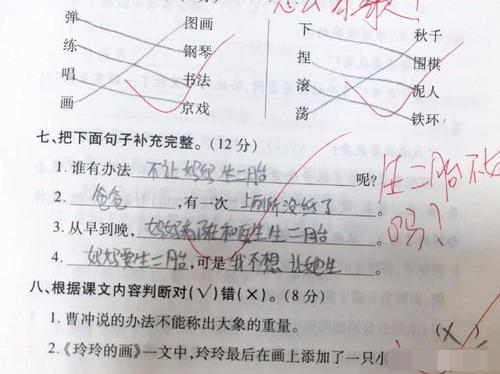 弹 图画 下 秋千
练 钢琴 捏 围棋
唱 书法 滚 泥人
画 京戏 荡 铁环
七、把下面句子补充完整。(12分)
1. 谁有办法 不让妈妈生二胎 呢? 生二胎不
2. 爸爸 ,有一次 上厕所没纸了 。 吗!
3. 从早到晚, 妈妈 生二胎 。
4. 妈妈要生二胎 ,可是 我不想让她生 。
八、根据课文内容判断对(√)错(×)。(8分)
1. 曹冲说的办法不能称出大象的重量。 (×)
2.《玲玲的画》一文中,玲玲最后在画上添加了一只小